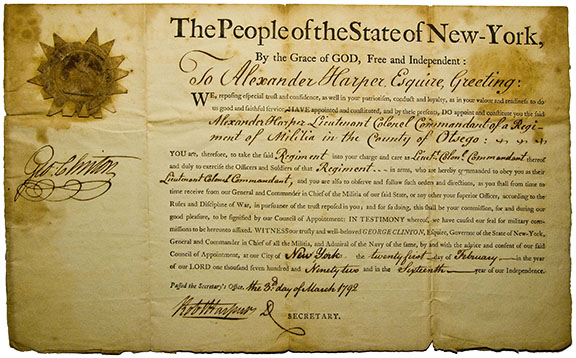 The People of the State of New-York,
By the Grace of GOD, Free and Independent:
To Alexander Harper, Esquire, Greeting:
WE, reposing especial trust and confidence, as well in your patriotism, conduct and loyalty, as in your valour and readiness to do
us good and faithful service, HAVE appointed and constituted, and by these presents, DO appoint and constitute you the said
Alexander Harper Lieutenant Colonel Commandant of a Regi-
ment of Militia in the County of Otsego:
YOU are, therefore, to take the said Regiment into your charge and care as Lieut. Colonl. Commandant thereof
and duly to exercise the Officers and Soldiers of that Regiment in arms, who are hereby commanded to obey you as their
Lieutenant Colonel Commandant, and you are also to observe and follow such orders and directions, as you shall from time to
time receive from our General and Commander in Chief of the Militia of our said State, or any other your superior Officer, according to the
Rules and Discipline of War, in pursuance of the trust reposed in you; and for so doing, this shall be your commission, for and during our
good pleasure, to be signified by our Council of Appointment: IN TESTIMONY whereof, we have caused our seal for military com-
missions to be hereunto affixed. WITNESS our trusty and well-beloved GEORGE CLINTON, Esquire, Governor of the State of New-York,
General and Commander in Chief of all the Militia, and Admiral of the Navy of the same, by and with the advice and consent of our said
Council of Appointment, at our City of New York the twenty first day of February in the year
of our LORD one thousand seven hundred and Ninety two and in the Sixteenth year of our Independence.
Passed the Secretary's Office, the 3d. day of March 1792
SECRETARY.
Geo: Clinton
Robt Harpur D